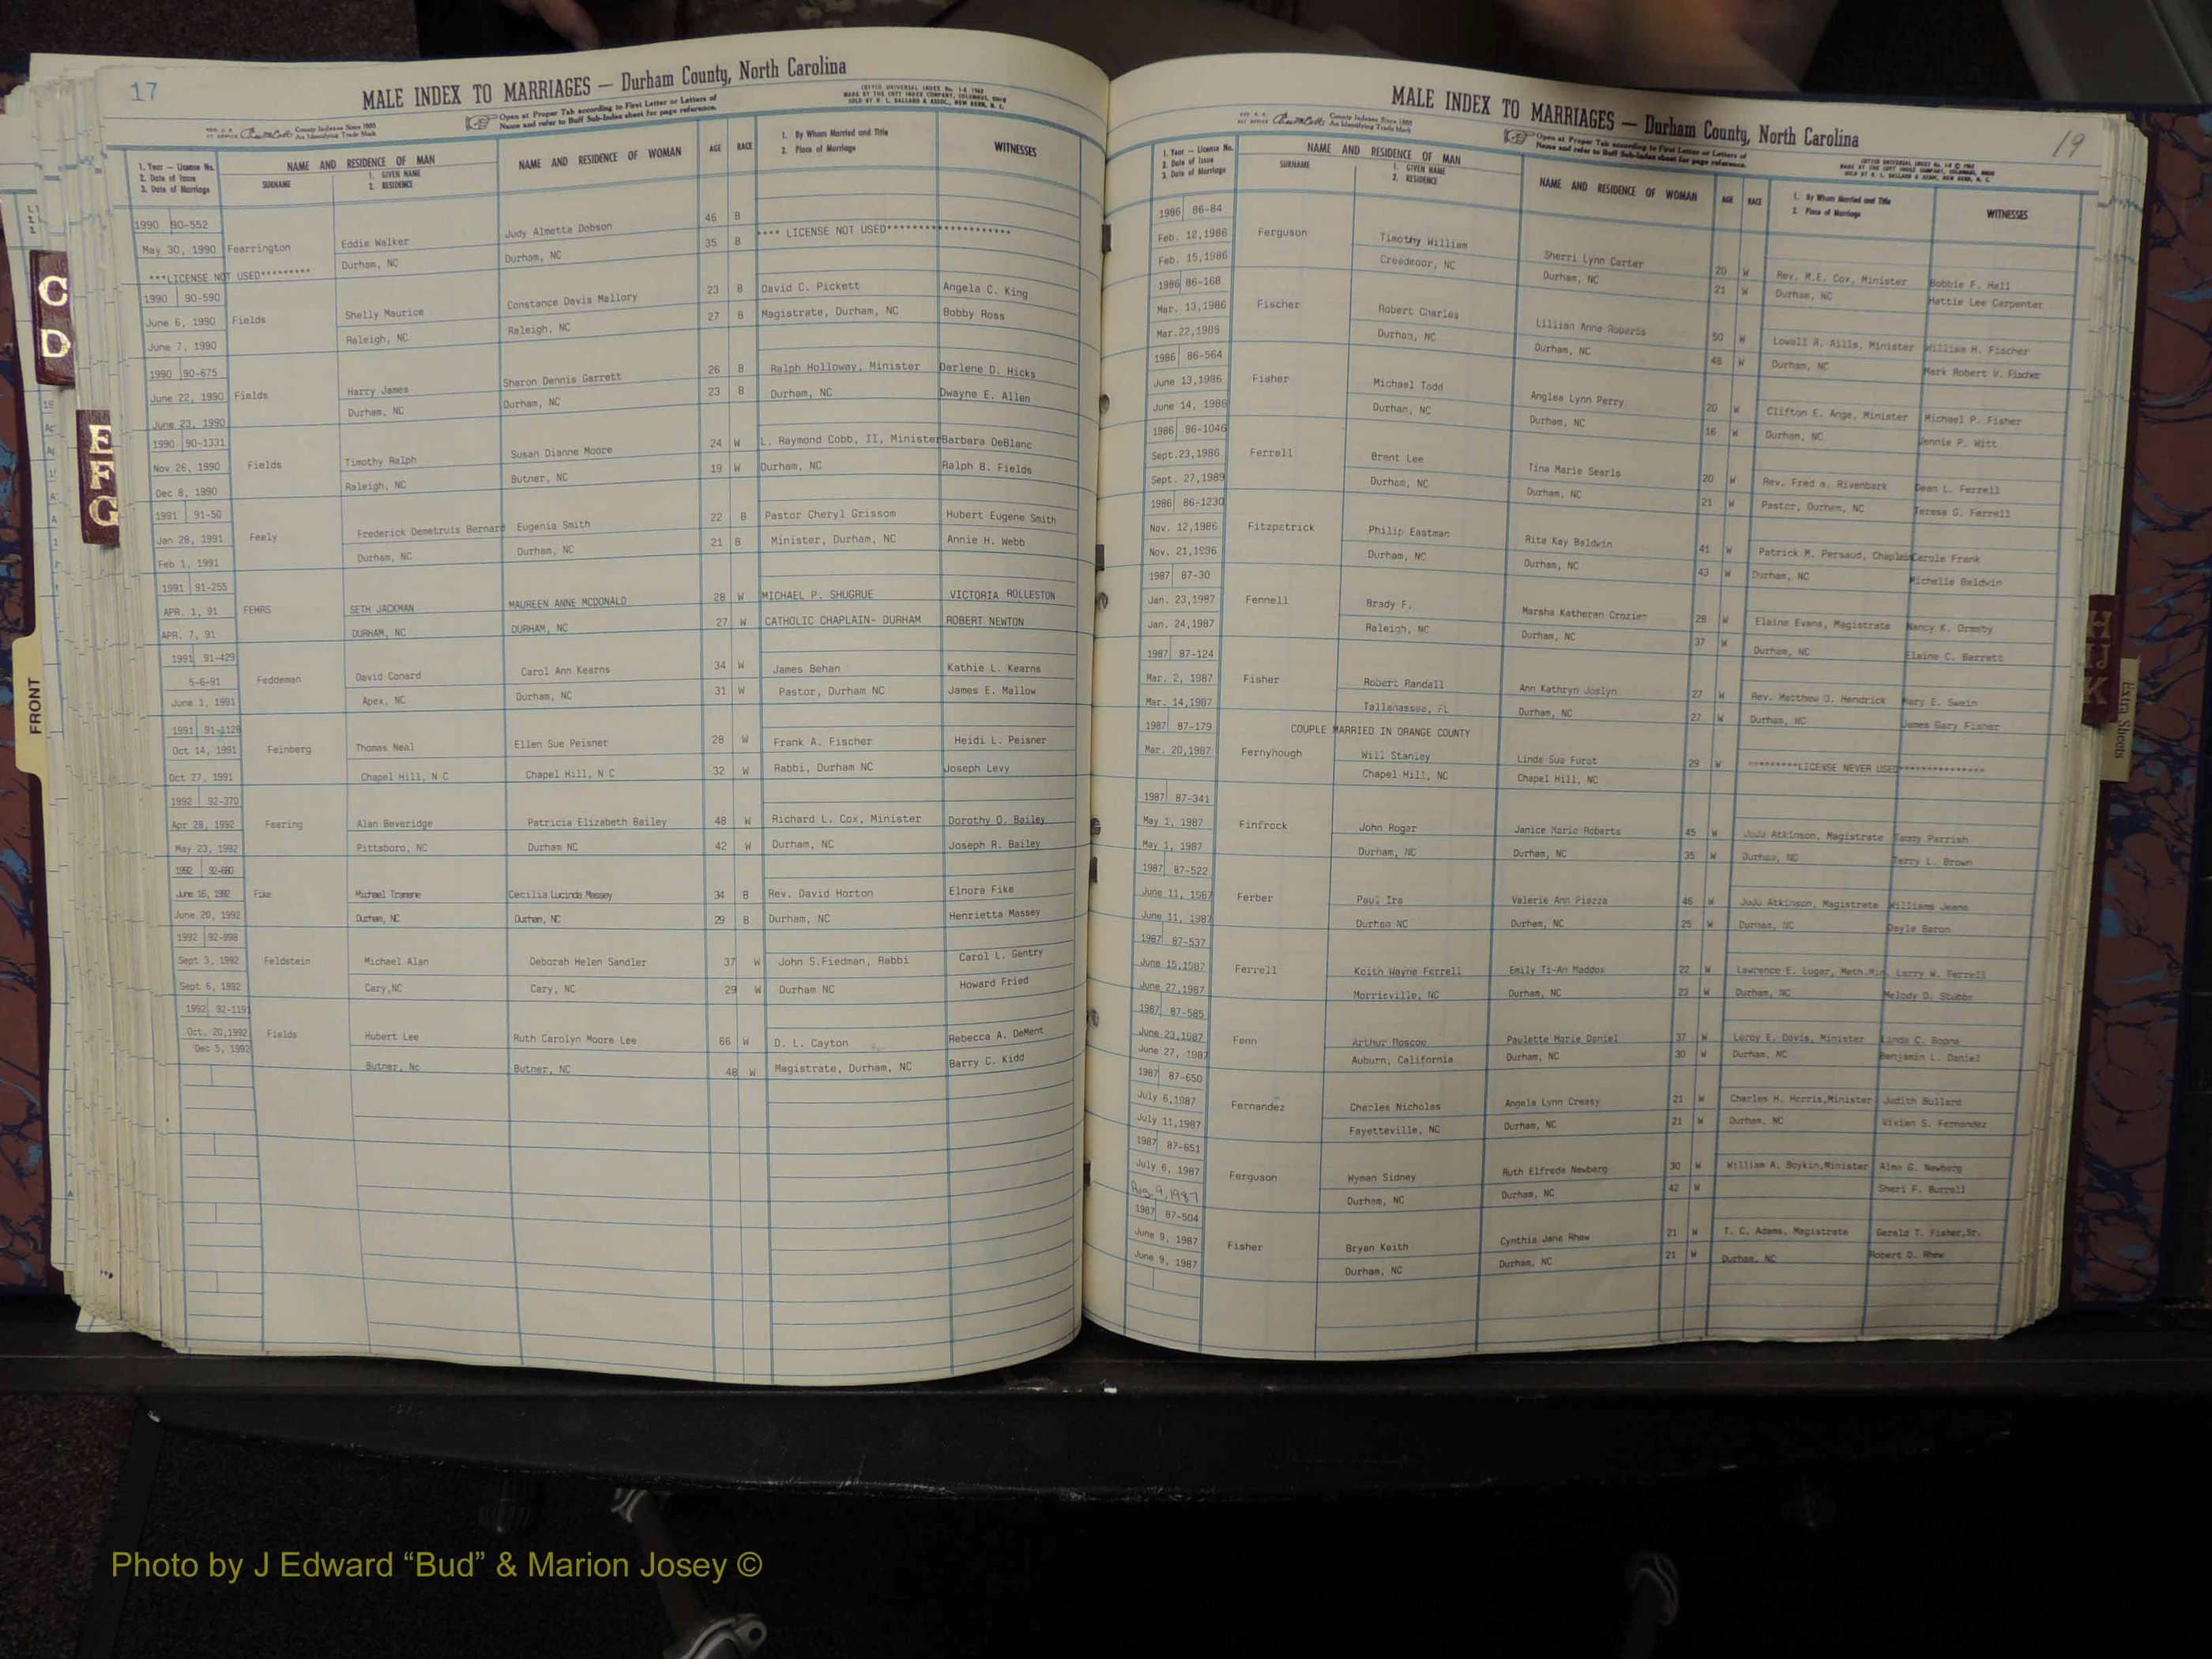 17
MALE INDEX TO MARRIAGES — Durham County, North Carolina
Open at Proper Tab according to First Letter or Letters of
Name and refer to Buff Sub-Index sheet for page reference.
County Indexes Since 1888
An Identifying Trade Mark
1. Year — License No.
2. Date of Issue
3. Date of Marriage
NAME AND RESIDENCE OF MAN
SURNAME
1. GIVEN NAME
2. RESIDENCE
NAME AND RESIDENCE OF WOMAN
AGE RACE
1. By Whom Married and Title
2. Place of Marriage
WITNESSES
1990 90-552 Judy Almetta Dobson 46 B
May 30, 1990 Fearrington Eddie Walker Durham, NC 35 B **** LICENSE NOT USED********************
***LICENSE NOT USED********* Durham, NC
1990 90-590 Constance Davis Mallory 23 B David C. Pickett Angela C. King
June 6, 1990 Fields Shelly Maurice Raleigh, NC 27 B Magistrate, Durham, NC Bobby Ross
June 7, 1990 Raleigh, NC
1990 90-675 Sharon Dennis Garrett 26 B Ralph Holloway, Minister Darlene D. Hicks
June 22, 1990 Fields Harry James Durham, NC 23 B Durham, NC Dwayne E. Allen
June 23, 1990 Durham, NC
1990 90-1331 Susan Dianne Moore 24 W L. Raymond Cobb, II, Minister Barbara DeBlanc
Nov 26, 1990 Fields Timothy Ralph Butner, NC 19 W Durham, NC Ralph B. Fields
Dec 8, 1990 Raleigh, NC
1991 91-50 Eugenia Smith 22 B Pastor Cheryl Grissom Hubert Eugene Smith
Jan 28, 1991 Feely Frederick Demetruis Bernard Durham, NC 21 B Minister, Durham, NC Annie H. Webb
Feb 1, 1991 Durham, NC
1991 91-255 MAUREEN ANNE MCDONALD 28 W MICHAEL P. SHUGRUE VICTORIA ROLLESTON
APR. 1, 91 FEHRS SETH JACKMAN DURHAM, NC 27 W CATHOLIC CHAPLAIN- DURHAM ROBERT NEWTON
APR. 7, 91 DURHAM, NC
1991 91-429 Carol Ann Kearns 34 W James Behan Kathie L. Kearns
5-6-91 Feddeman David Conard Durham, NC 31 W Pastor, Durham NC James E. Mallow
June 1, 1991 Apex, NC
1991 91-1128 Ellen Sue Peisner 28 W Frank A. Fischer Heidi L. Peisner
Oct 14, 1991 Feinberg Thomas Neal Chapel Hill, N C 32 W Rabbi, Durham NC Joseph Levy
Oct 27, 1991 Chapel Hill, N C
1992 92-370 Patricia Elizabeth Bailey 48 W Richard L. Cox, Minister Dorothy O. Bailey
Apr 28, 1992 Fearing Alan Beveridge Durham NC 42 W Durham, NC Joseph R. Bailey
May 23, 1992 Pittsboro, NC
1992 92-680
June 16, 1992 Fike Michael Tramane Cecilia Lucinda Massey 34 B Rev. David Horton Elnora Fike
June 20, 1992 Durham, NC Durham, NC 29 B Durham, NC Henrietta Massey
1992 92-998
Sept 3, 1992 Feldstein Michael Alan Deborah Helen Sandler 37 W John S.Fiedman, Rabbi Carol L. Gentry
Sept 6, 1992 Cary,NC Cary, NC 29 W Durham NC Howard Fried
1992 92-1191
Oct. 20,1992 Fields Hubert Lee Ruth Carolyn Moore Lee 66 W D. L. Cayton Rebecca A. DeMent
Dec 5, 1992 Butner, Nc Butner, NC 48 W Magistrate, Durham, NC Barry C. Kidd
19
MALE INDEX TO MARRIAGES — Durham County, North Carolina
Open at Proper Tab according to First Letter or Letters of
Name and refer to Buff Sub-Index sheet for page reference.
County Indexes Since 1888
An Identifying Trade Mark
1. Year — License No.
2. Date of Issue
3. Date of Marriage
NAME AND RESIDENCE OF MAN
SURNAME
1. GIVEN NAME
2. RESIDENCE
NAME AND RESIDENCE OF WOMAN
AGE RACE
1. By Whom Married and Title
2. Place of Marriage
WITNESSES
1986 86-84
Feb. 12,1986 Ferguson Timothy William Sherri Lynn Carter 20 W Rev. M.E. Cox, Minister Bobbie F. Hall
Feb. 15,1986 Creedmoor, NC Durham, NC 21 W Durham, NC Hattie Lee Carpenter
1986 86-168
Mar. 13,1986 Fischer Robert Charles Lillian Anne Roberts 50 W Lowell H. Aills, Minister William H. Fischer
Mar.22,1986 Durham, NC Durham, NC 48 W Durham, NC Mark Robert V. Fischer
1986 86-564
June 13,1986 Fisher Michael Todd Anglea Lynn Perry 20 W Clifton E. Ange, Minister Michael P. Fisher
June 14, 1986 Durham, NC Durham, NC 16 W Durham, NC Jennie P. Witt
1986 86-1046
Sept.23,1986 Ferrell Brent Lee Tina Marie Searls 20 W Rev. Fred a. Rivenbark Dean L. Ferrell
Sept. 27,1989 Durham, NC Durham, NC 21 W Pastor, Durham, NC Teresa G. Ferrell
1986 86-1230
Nov. 12,1986 Fitzpatrick Philip Eastman Rita Kay Baldwin 41 W Patrick M. Persaud, Chaplain Carole Frank
Nov. 21,1996 Durham, NC Durham, NC 43 W Durham, NC Michelle Baldwin
1987 87-30
Jan. 23,1987 Fennell Brady F. Marsha Katheran Crozier 28 W Elaine Evans, Magistrate Nancy K. Ormsby
Jan. 24,1987 Raleigh, NC Durham, NC 37 W Durham, NC Elaine C. Barrett
1987 87-124
Mar. 2, 1987 Fisher Robert Randall Ann Kathryn Joslyn 27 W Rev. Matthew O. Hendrick Mary E. Swain
Mar. 14,1987 Tallahassee, FL Durham, NC 27 W Durham, NC James Gary Fisher
1987 87-179 COUPLE MARRIED IN ORANGE COUNTY
Mar. 20,1987 Fernyhough Will Stanley Linda Sue Furst 29 W *********LICENSE NEVER USED***************
Chapel Hill, NC Chapel Hill, NC
1987 87-341
May 1, 1987 Finfrock John Roger Janice Marie Roberts 45 W JoJo Atkinson, Magistrate Tammy Parrish
May 1, 1987 Durham, NC Durham, NC 35 W Durham, NC Terry L. Brown
1987 87-522
June 11, 1987 Ferber Paul Ira Valerie Ann Piazza 46 W JoJo Atkinson, Magistrate Williams Jeans
June 11, 1987 Durham NC Durham, NC 25 W Durham, NC Doyle Baron
1987 87-537
June 15,1987 Ferrell Keith Wayne Ferrell Emily Ti-An Maddox 22 W Lawrence E. Lugar, Meth.Min. Larry W. Ferrell
June 27,1987 Morrisville, NC Durham, NC 23 W Durham, NC Melody D. Stubbs
1987 87-585
June 23,1987 Fonn Arthur Roscoe Paulette Marie Daniel 37 W Leroy E. Davis, Minister Linda C. Boone
June 27, 1987 Auburn, California Durham, NC 30 W Durham, NC Benjamin L. Daniel
1987 87-650
July 6,1987 Fernandez Charles Nicholas Angela Lynn Creasy 21 W Charles H. Harris,Minister Judith Bullard
July 11,1987 Fayetteville, NC Durham, NC 21 W Durham, NC Vivian S. Fernandez
1987 87-651
July 6, 1987 Ferguson Wyman Sidney Ruth Elfreda Newberg 30 W William A. Boykin,Minister Alma G. Newberg
Aug 9, 1987 Durham, NC Durham, NC 42 W Sheri F. Burrell
1987 87-504
June 9, 1987 Fisher Bryan Keith Cynthia Jane Rhew 21 W T. C. Adams, Magistrate Gerald T. Fisher,Sr.
June 9, 1987 Durham, NC Durham, NC 21 W Durham, NC Robert D. Rhew
C
D
E
F
G
FRONT
H
IJ
K
Extra Sheets
Photo by J Edward “Bud” & Marion Josey ©